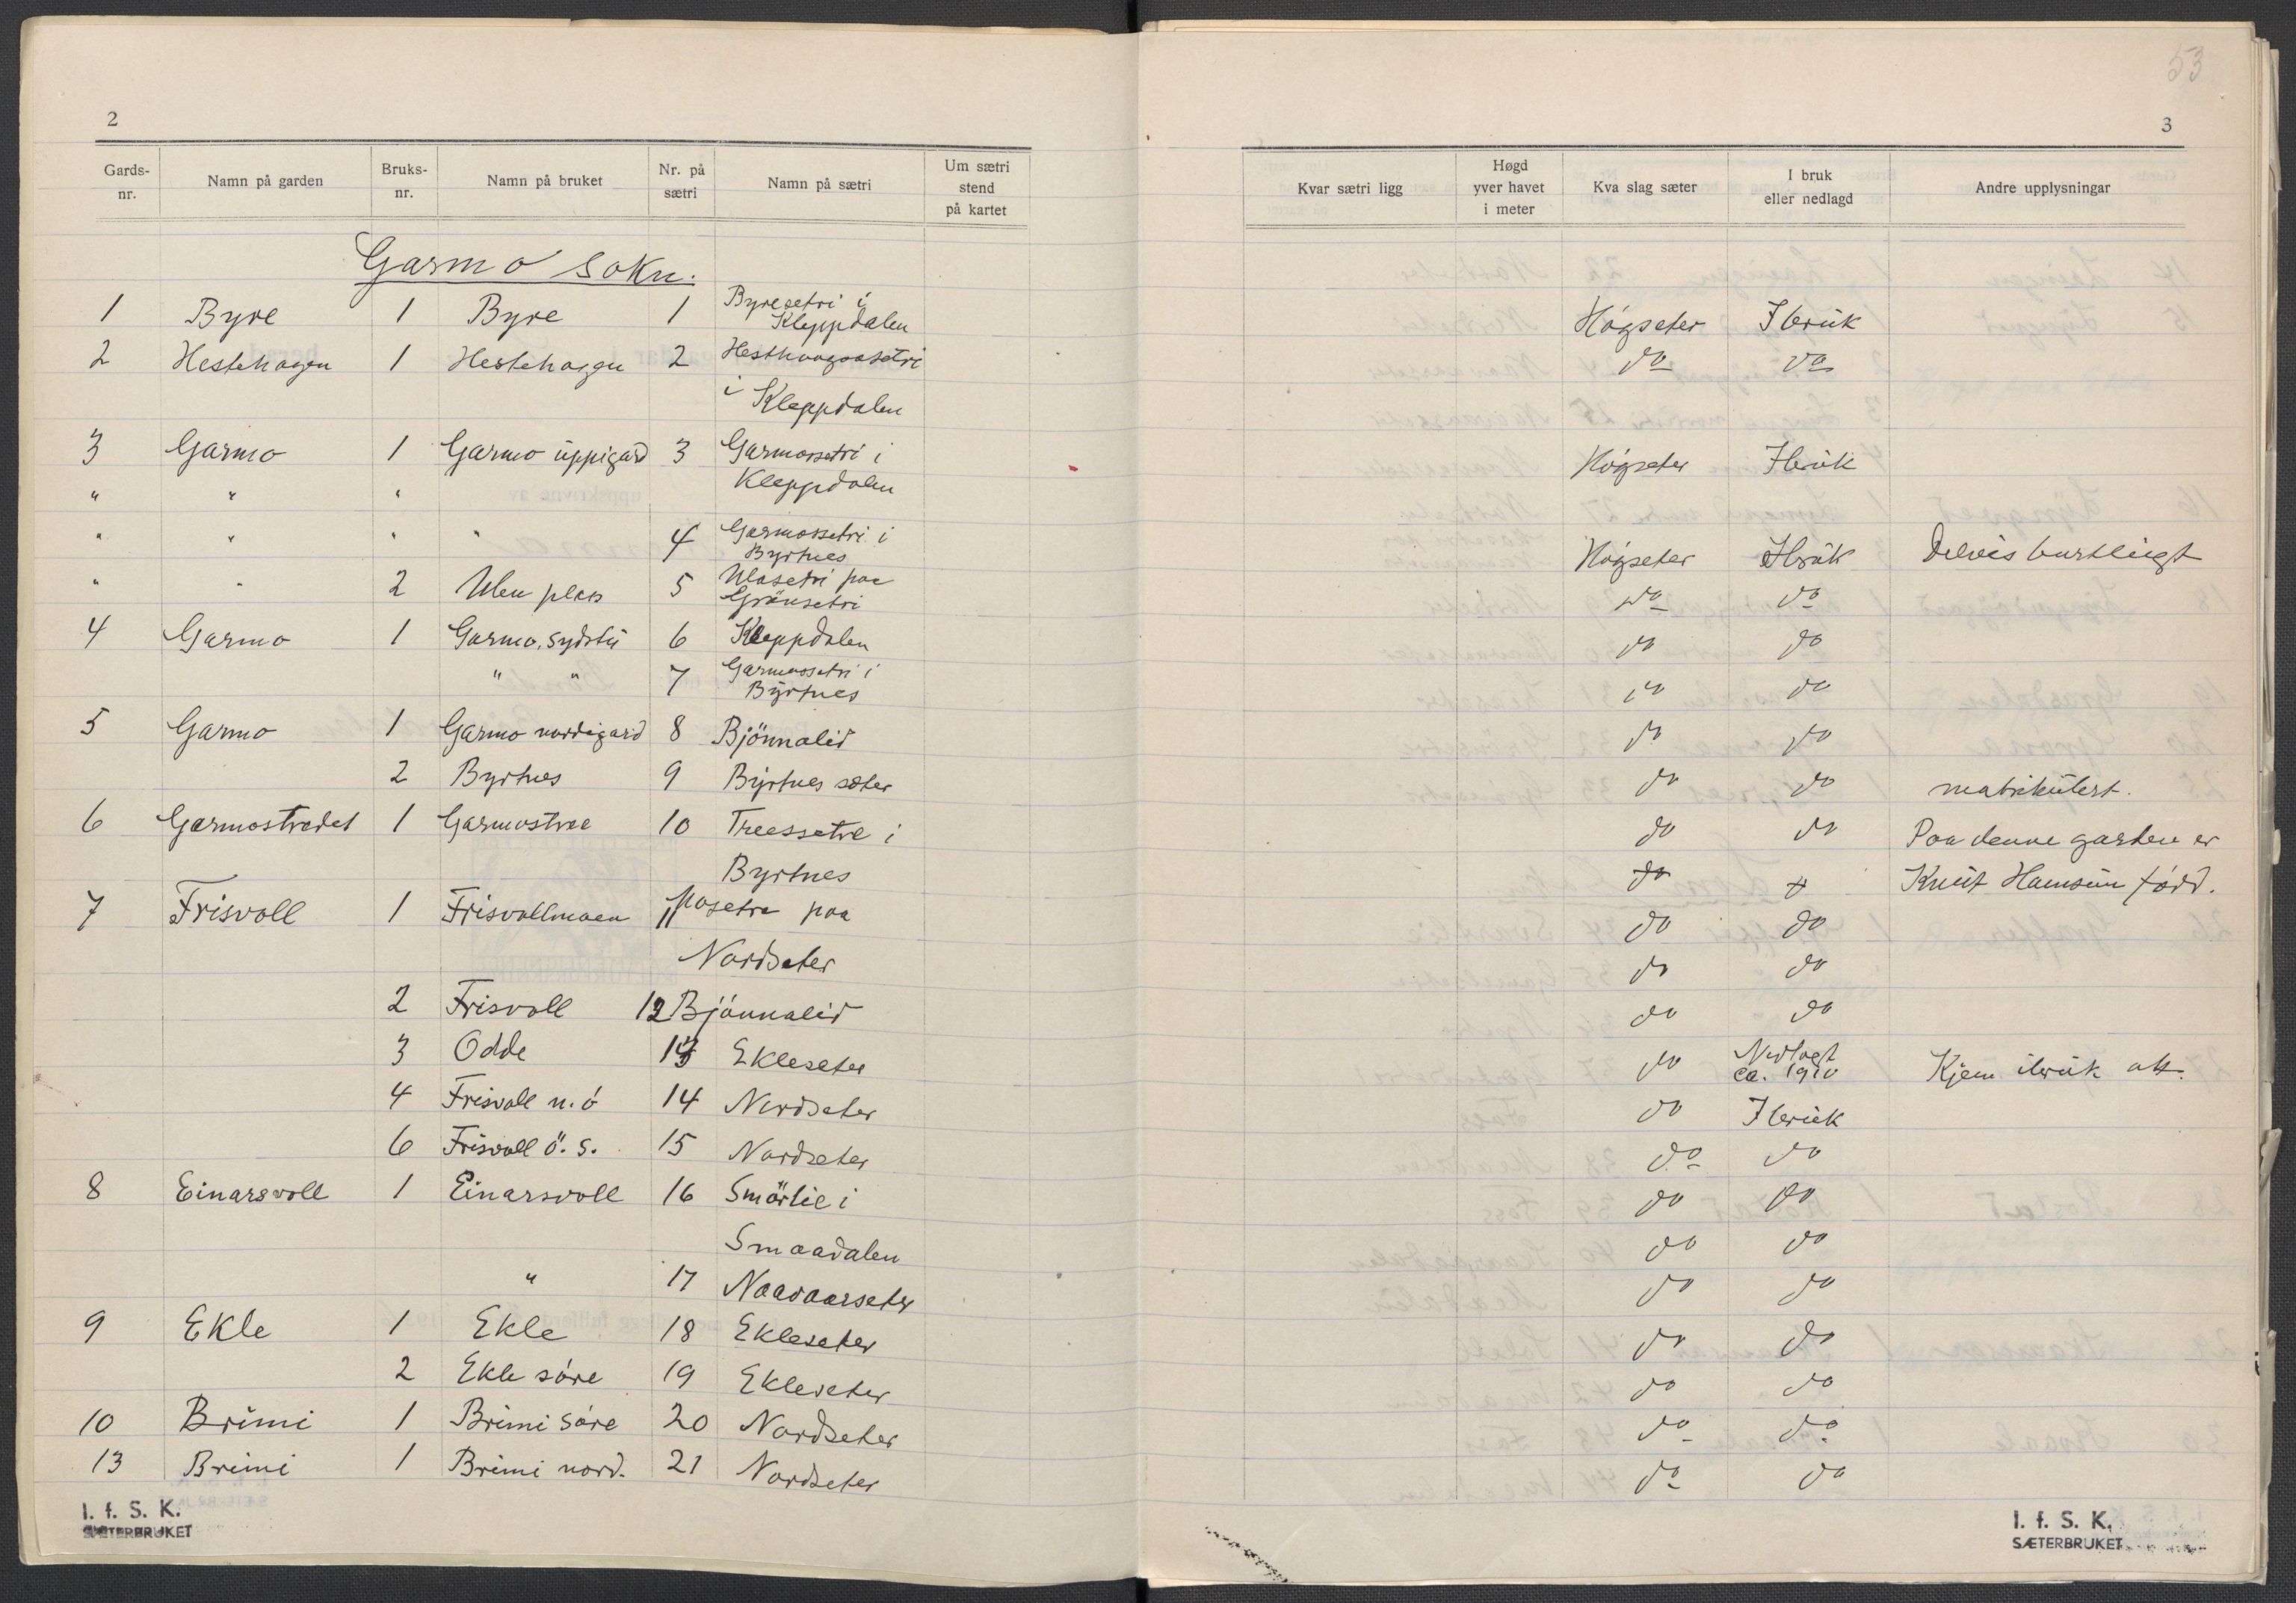 53
2
3
Gards-nr. Namn på garden Bruks-nr. Namn på bruket Nr. på sætri Namn på sætri Um sætri stend på kartet Kvar sætri ligg Høgd yver havet i meter Kva slag sæter I bruk eller nedlagd Andre upplysningar
Garmo sokn.
1 Byre 1 Byre 1 Byresetri i Kleppdalen Högseter Ibruk
2 Hestehagen 1 Hestehagen 2 do do
i Kleppdalen
3 Garmo 1 Garmo uppigard 3 Garmosetri i Högseter Ibruk
" " " Kleppdalen
" " " " 4 Garmossetri i Byrtnes Högseter Ibruk Delvis
" " 2 Ulen plass 5 Ulasetri paa Grönsetri do do
4 Garmo 1 Garmo. sydstu 6 Kleppdalen do do
" " 7 Garmossetri i Byrtnes do do
5 Garmo 1 Garmo nordigard 8 Bjönnalid do do
2 Byrtnes 9 Byrtnes sæter do do matrikulert.
6 Garmostredet 1 Garmostree 10 Treessetre i do do Paa denne garden er
Byrtnes do Knut Hamsun född.
7 Frisvoll 1 Frisvollmoen 11 Mosetra paa do do
Nordseter do do
2 Frisvoll 12 Bjönnalid do do
3 Odde 13 Ekleseter do Nedlagt ca. 1910 Kjem ibruk att.
4 Frisvoll n. ö 14 Nordseter do Ibruk
6 Frisvoll ö. s. 15 Nordseter do do
8 Einarsvoll 1 Einarsvoll 16 Smörlie i do do
Smaadalen do do
" 17 Naavaarseter do do
9 Ekle 1 Ekle 18 Ekleseter do do
2 Ekle söre 19 Ekleseter do do
10 Brimi 1 Brimi Söre 20 Nordseter do do
13 Brimi 1 Brimi nord. 21 Nordseter do do
I. f. S. K.
SÆTERBRUKET
I. f. S. K.
SÆTERBRUKET